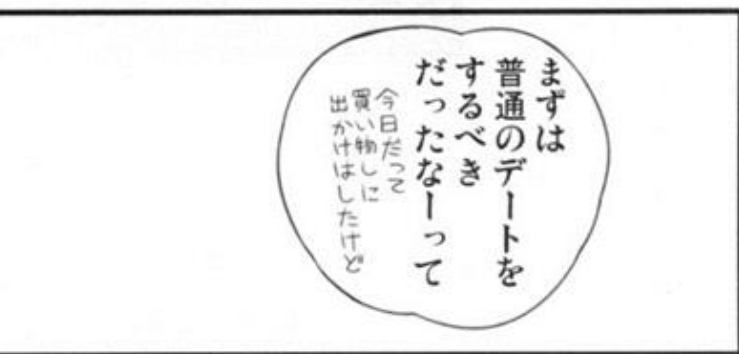 まずは
普通のデートを
するべき
だったなーって
今日だって
買い物しに
出かけはしたけど